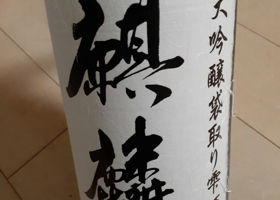 大吟醸袋取り雫
麒麟